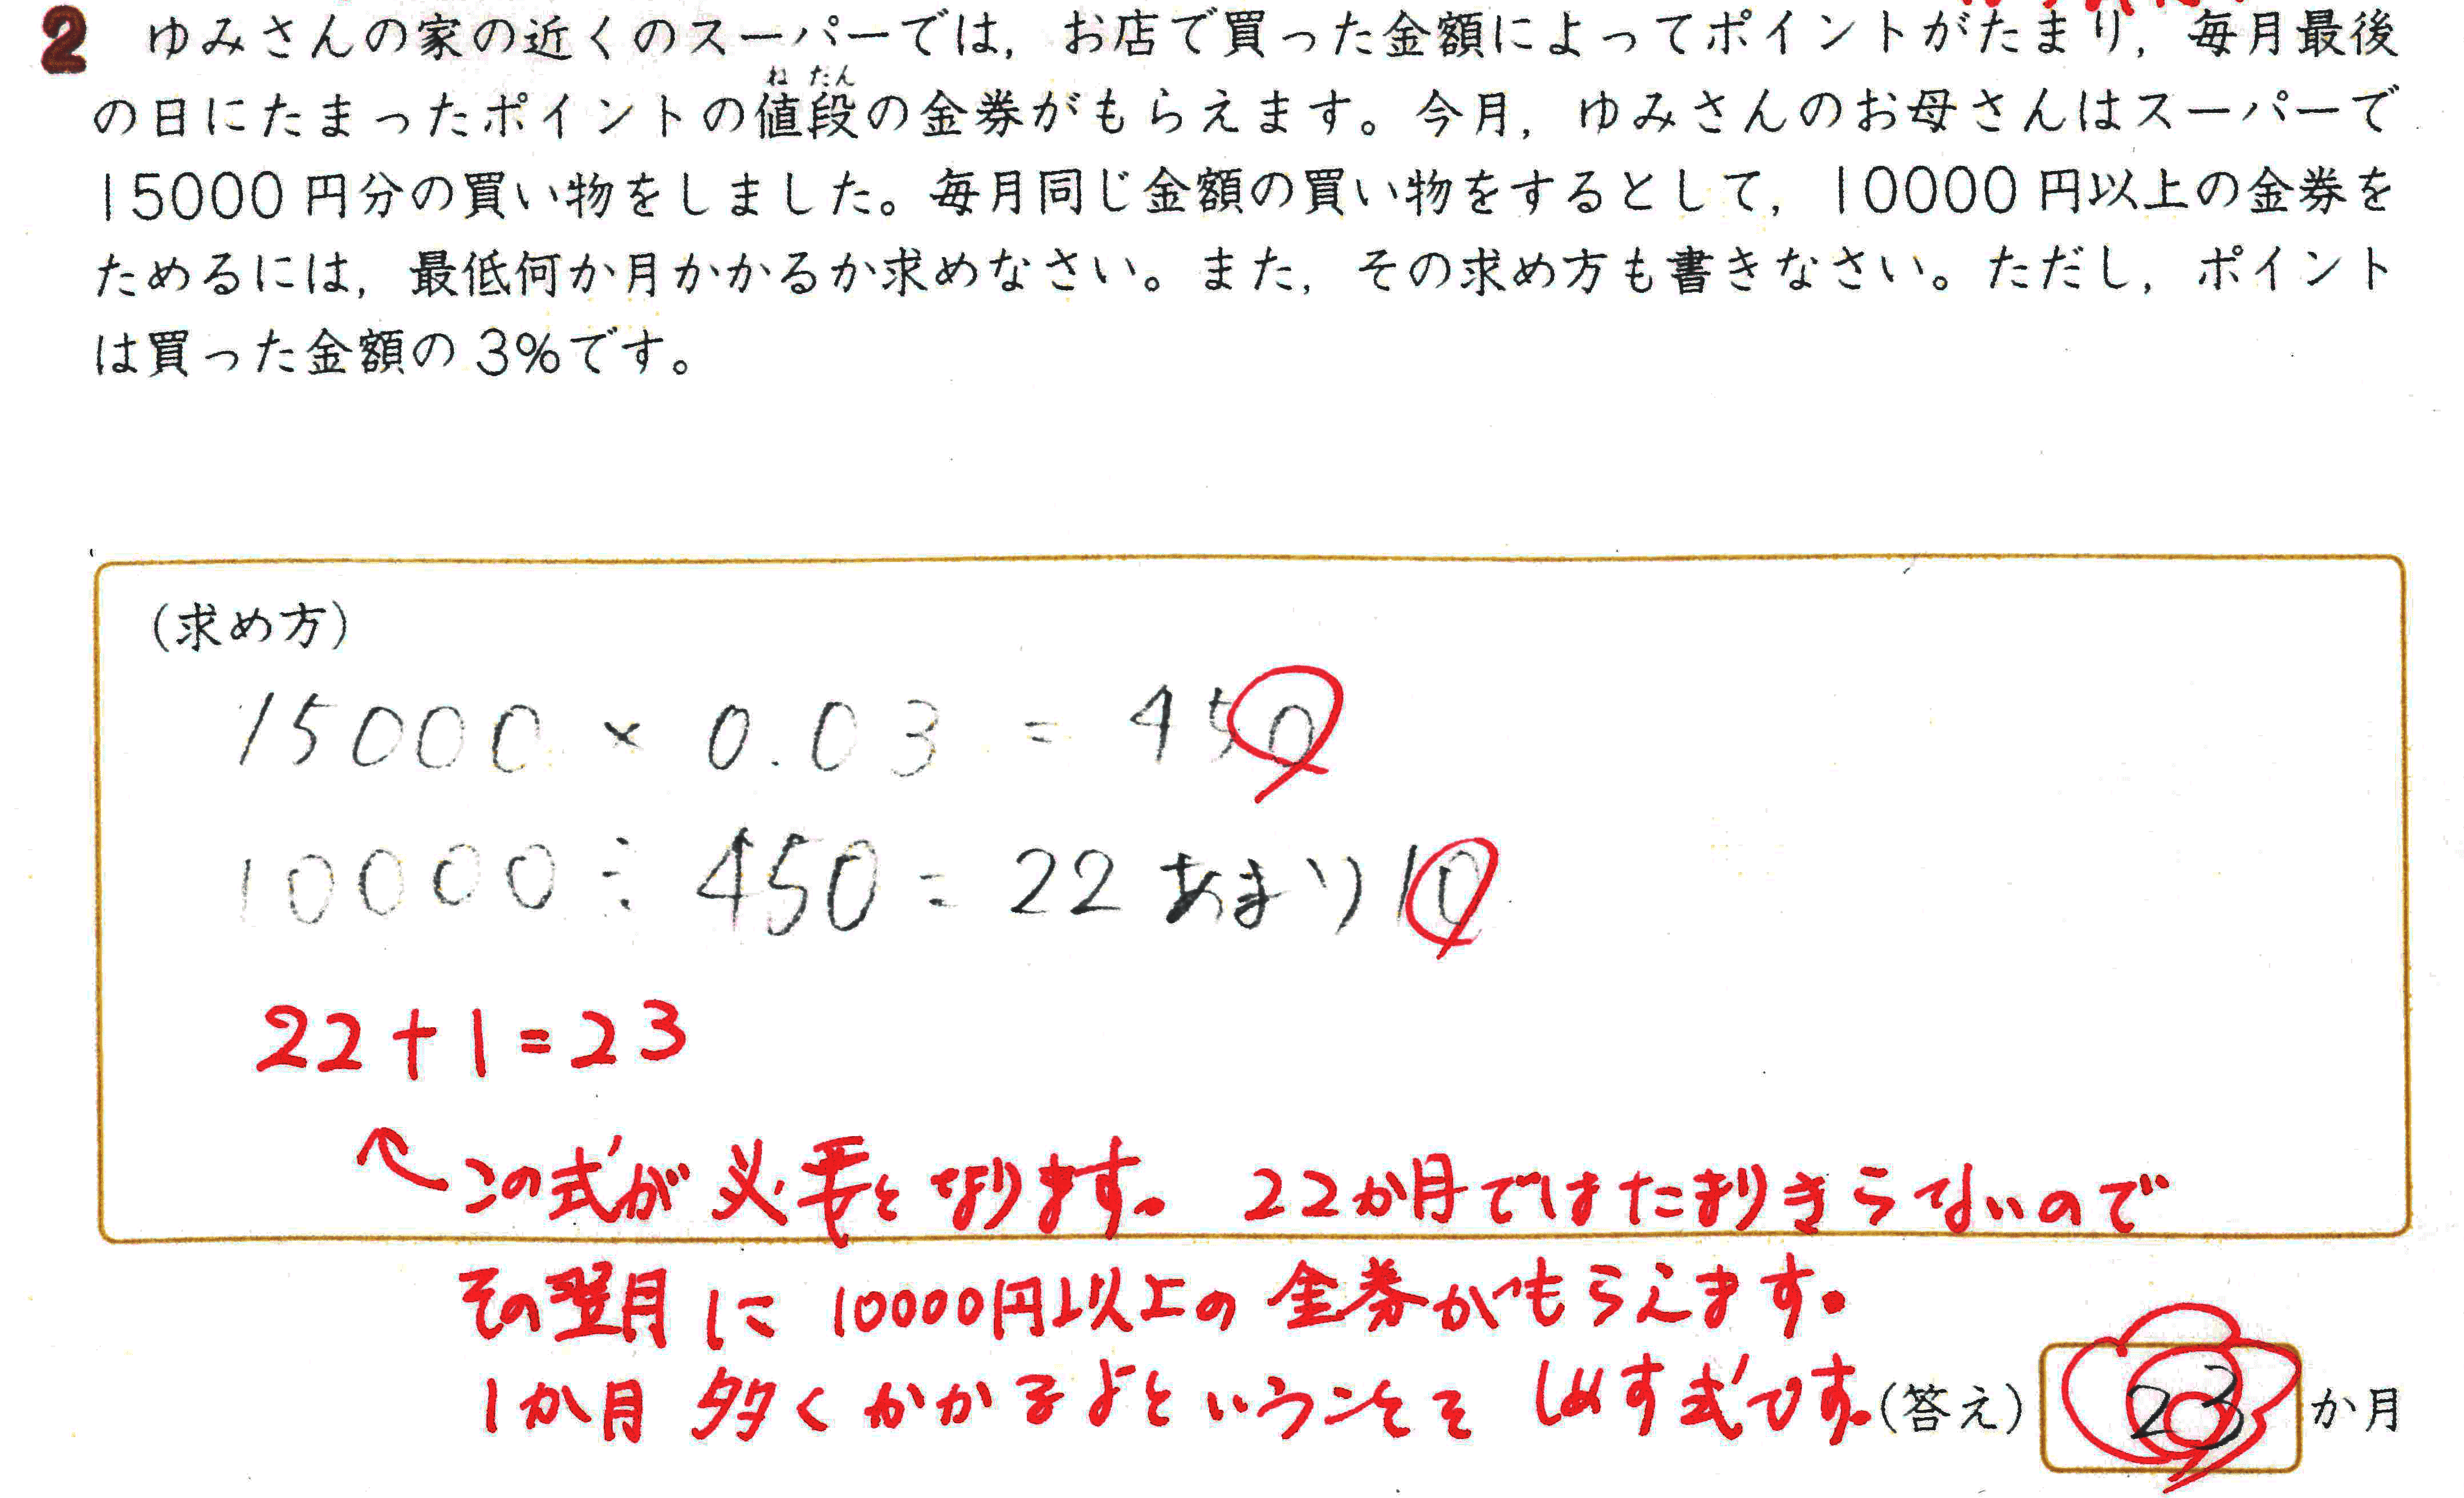 2 ゆみさんの家の近くのスーパーでは,お店で買った金額によってポイントがたまり,毎月最後
ねだん
の日にたまったポイントの値段の金券がもらえます。今月,ゆみさんのお母さんはスーパーで
15000円分の買い物をしました。毎月同じ金額の買い物をするとして,10000円以上の金券を
ためるには,最低何か月かかるか求めなさい。また,その求め方も書きなさい。ただし,ポイント
は買った金額の3%です。
(求め方)
15000 × 0.03 = 450
10000 ÷ 450 = 22 あまり 10
22+1=23
←この式が必要となります。22か月ではたまりきらないので
その翌月に10000円以上の金券がもらえます。
1か月多くかかるよということをしめす式です。
(答え) 23 か月